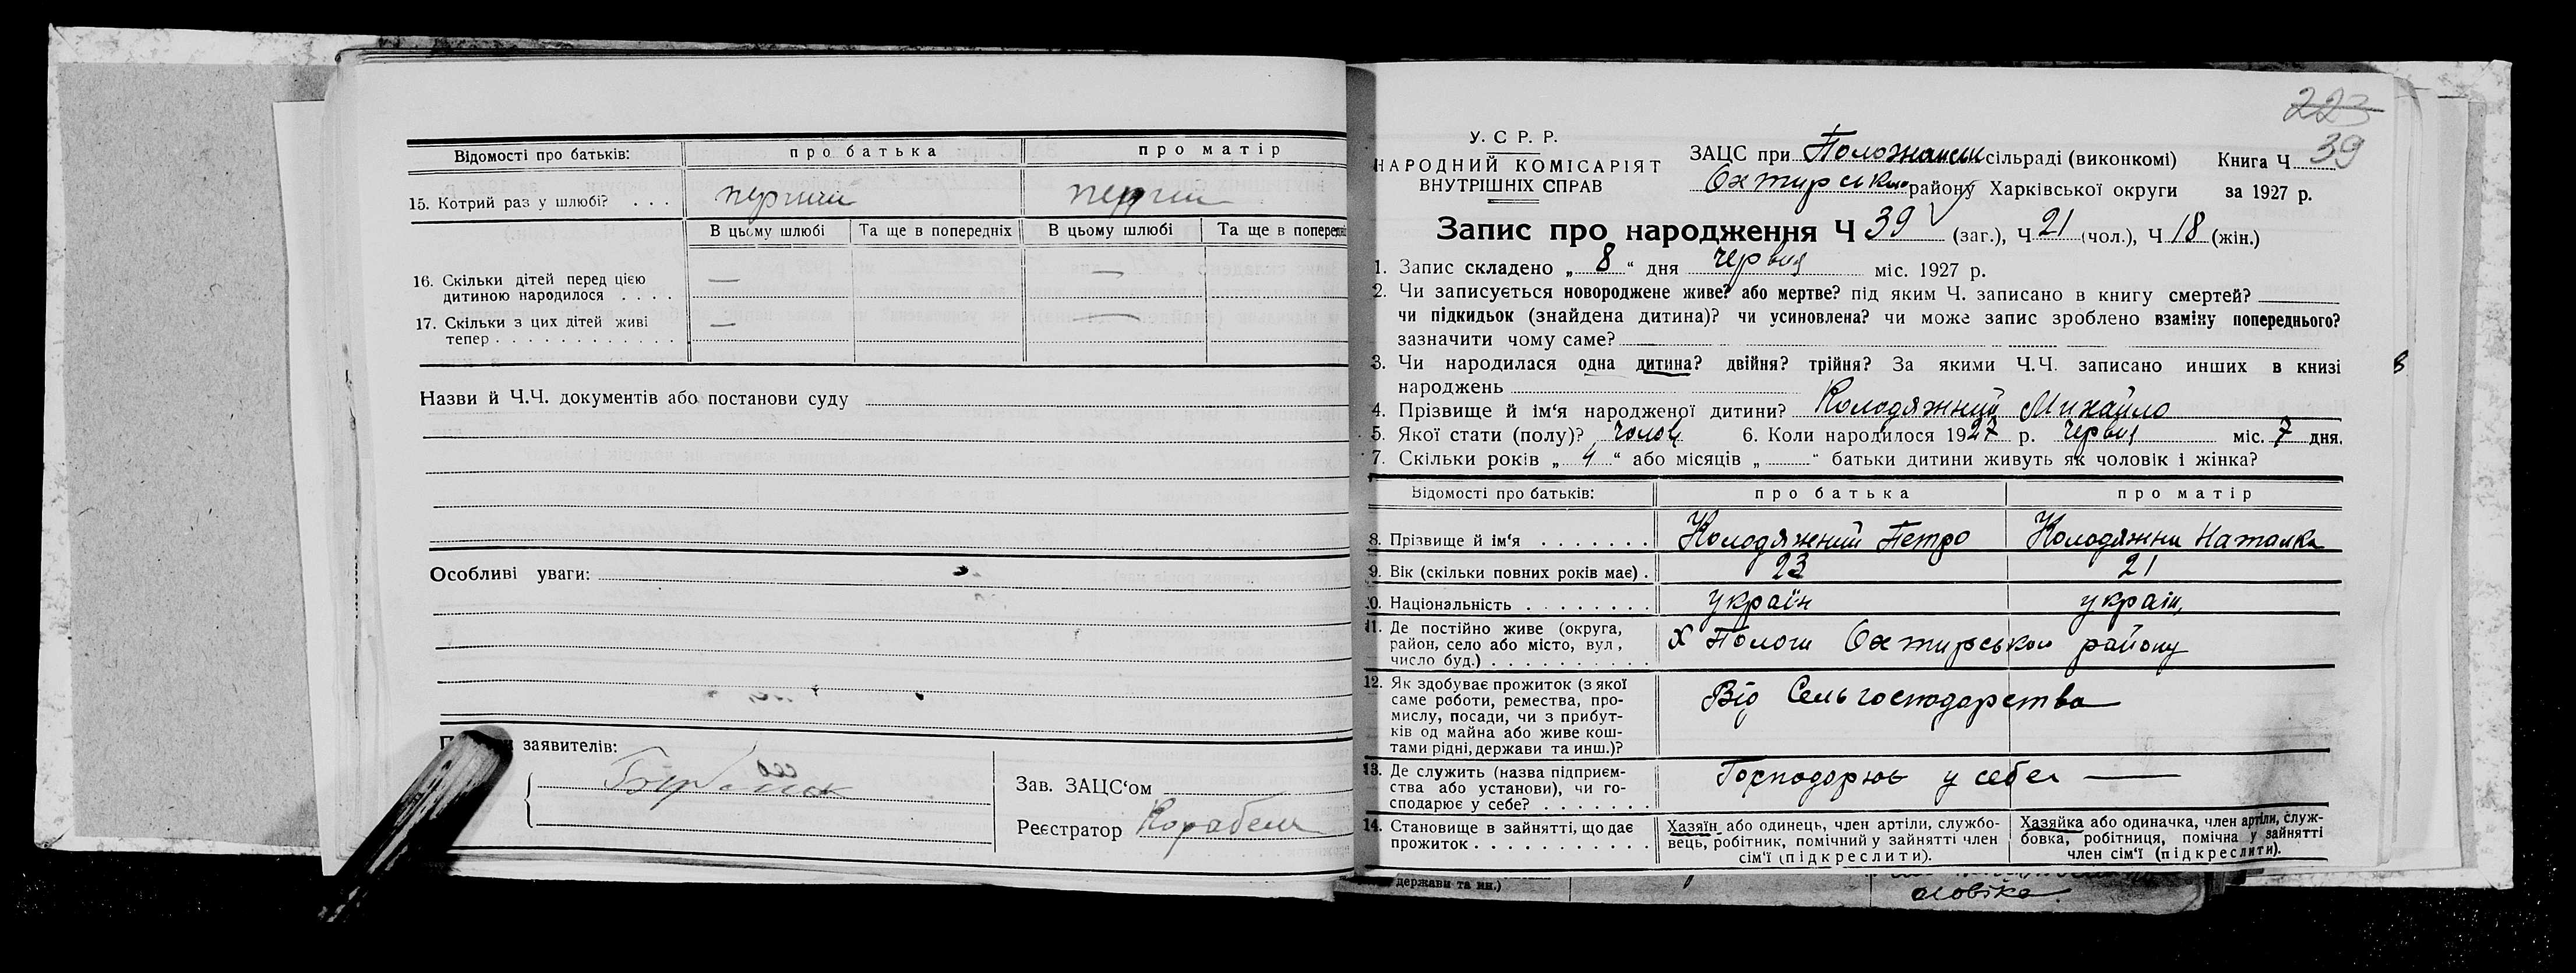 Відомості про батьків: про батька про матір
15. Котрий раз у шлюбі? . . . перший перший
В цьому шлюбі Та ще в попередніх В цьому шлюбі Та ще в попередніх
16. Скільки дітей перед цією — —
дитиною народилося . . . .
17. Скільки з цих дітей живі — —
тепер . . . . . . . . . . . .
Назви й Ч.Ч. документів або постанови суду
Особливі уваги:
заявителів:
Зав. ЗАЦС‘ом
Реєстратор Корабель
223
39
У. С Р. Р.
НАРОДНИЙ КОМІСАРІЯТ
ВНУТРІШНІХ СПРАВ
ЗАЦС при сільраді (виконкомі) Книга Ч.
Охтирськ району Харківської округи за 1927 р.
Запис про народження Ч 39 (заг.), Ч 21 (чол.), Ч 18 (жін.)
1. Запис складено „ 8 “ дня червня міс. 1927 р.
2. Чи записується новороджене живе? або мертве? під яким Ч. записано в книгу смертей?
чи підкидьок (знайдена дитина)? чи усиновлена? чи може запис зроблено взаміну попереднього?
зазначити чому саме?
3. Чи народилася одна дитина? двійня? трійня? За якими Ч.Ч. записано инших в книзі
народжень
4. Прізвище й ім‘я народженої дитини? Колодяжний Михайло
5. Якої стати (полу)? чолов 6. Коли народилося 1927 р. червня міс. 7 дня.
7. Скільки років „ 4 “ або місяців „ “ батьки дитини живуть як чоловік і жінка?
Відомості про батьків: про батька про матір
8. Прізвище й ім‘я . . . . . . . Колодяжний Петро Колодяжна Наталка
9. Вік (скільки повних років має) . 23 21
10. Національність . . . . . . . . україн україн
11. Де постійно живе (округа,
район, село або місто, вул,
число буд.) . . . . . . . . . . .
Х Пологи Охтирськои району
12. Як здобуває прожиток (з якої
саме роботи, ремества, про-
мислу, посади, чи з прибут-
ків од майна або живе кош-
тами рідні, держави та инш.)?
Від Сельгосподарства
13. Де служить (назва підприєм-
ства або установи), чи го-
сподарює у себе? . . . . . . .
Господорює у себе —
14. Становище в зайнятті, що дає
прожиток . . . . . . . . . . . .
Хазяїн або одинець, член артіли, службо-
вець, робітник, помічний у зайнятті член
сім‘ї (підкреслити).
Хазяйка або одиначка, член артіли, служ-
бовка, робітниця, помічна у зайнятті
член сім‘ї (підкреслити).
держави та ин.)
оловіка.